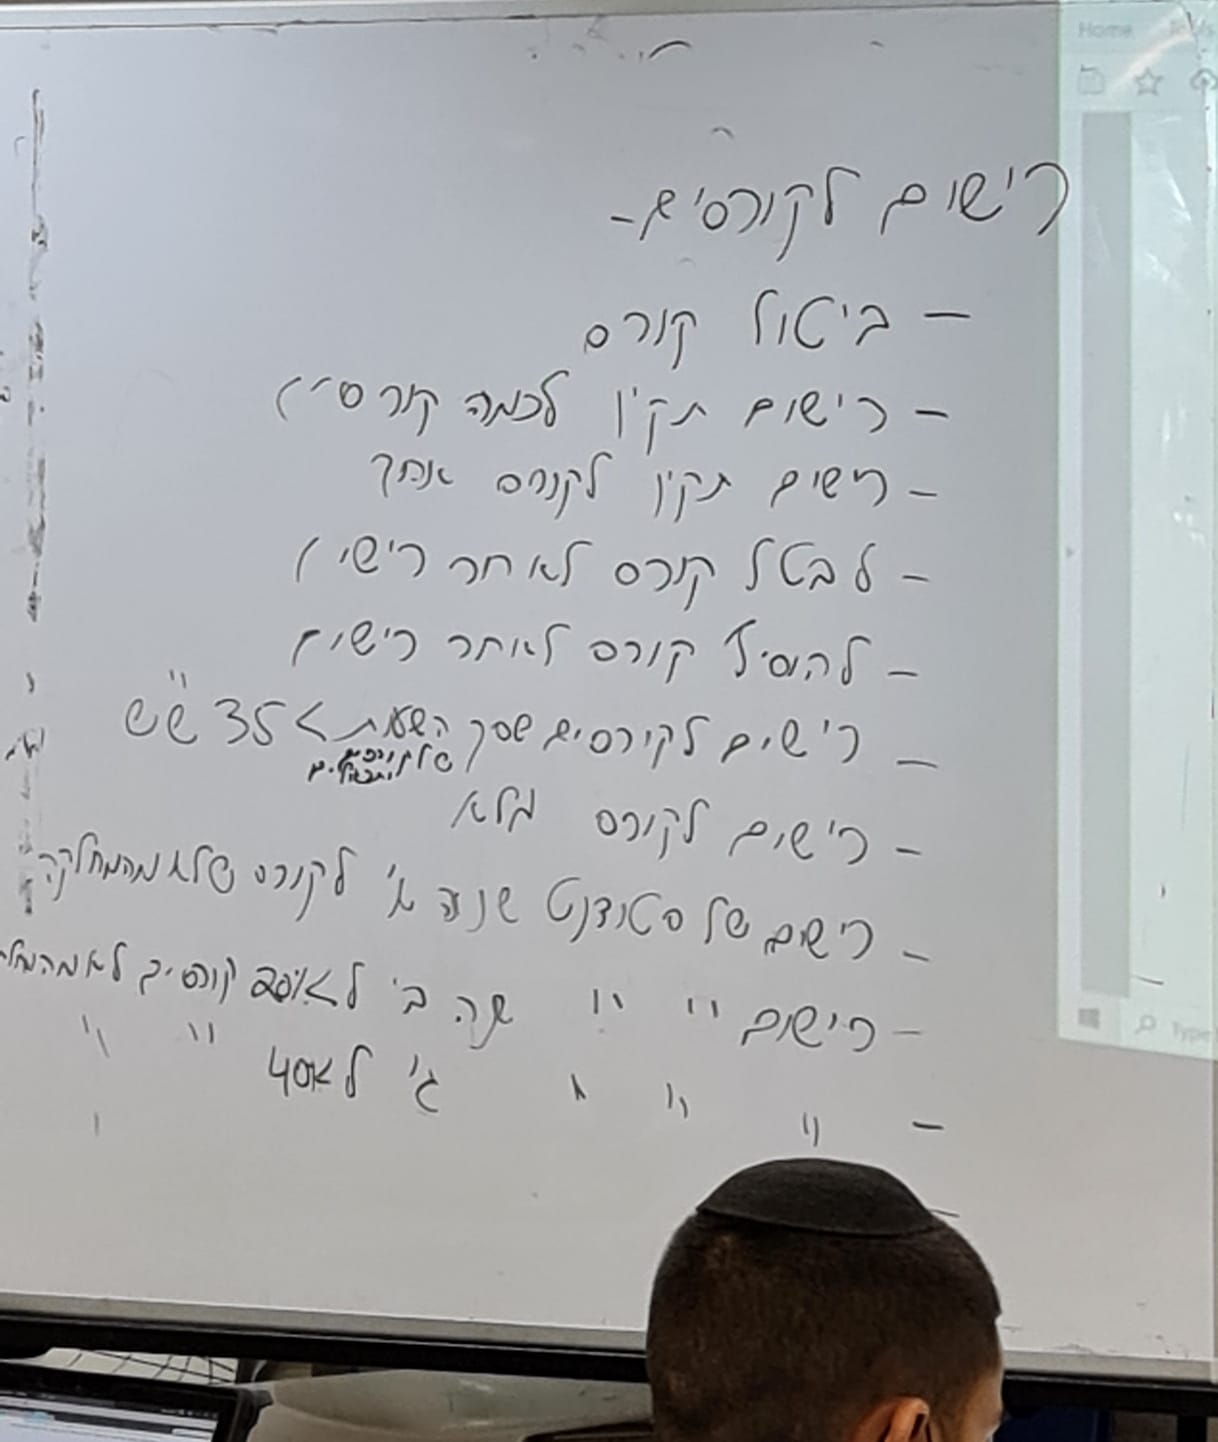 Home Tools
רישום לקורסים -
- ביטול קורס
- רישום תקין לכמה קורסים
- רישום תקין לקורס אחד
- לבטל קורס לאחר רישום
- להוסיף קורס לאחר רישום
- רישום לקורסים שסך השעות > 35 ש"ש
- רישום לקורס מלא
- רישום של סטודנט שנה א' לקורס שלא מהמחלקה
- רישום " " שנה ב' קורסים לא
- " " " ג' " "
Type